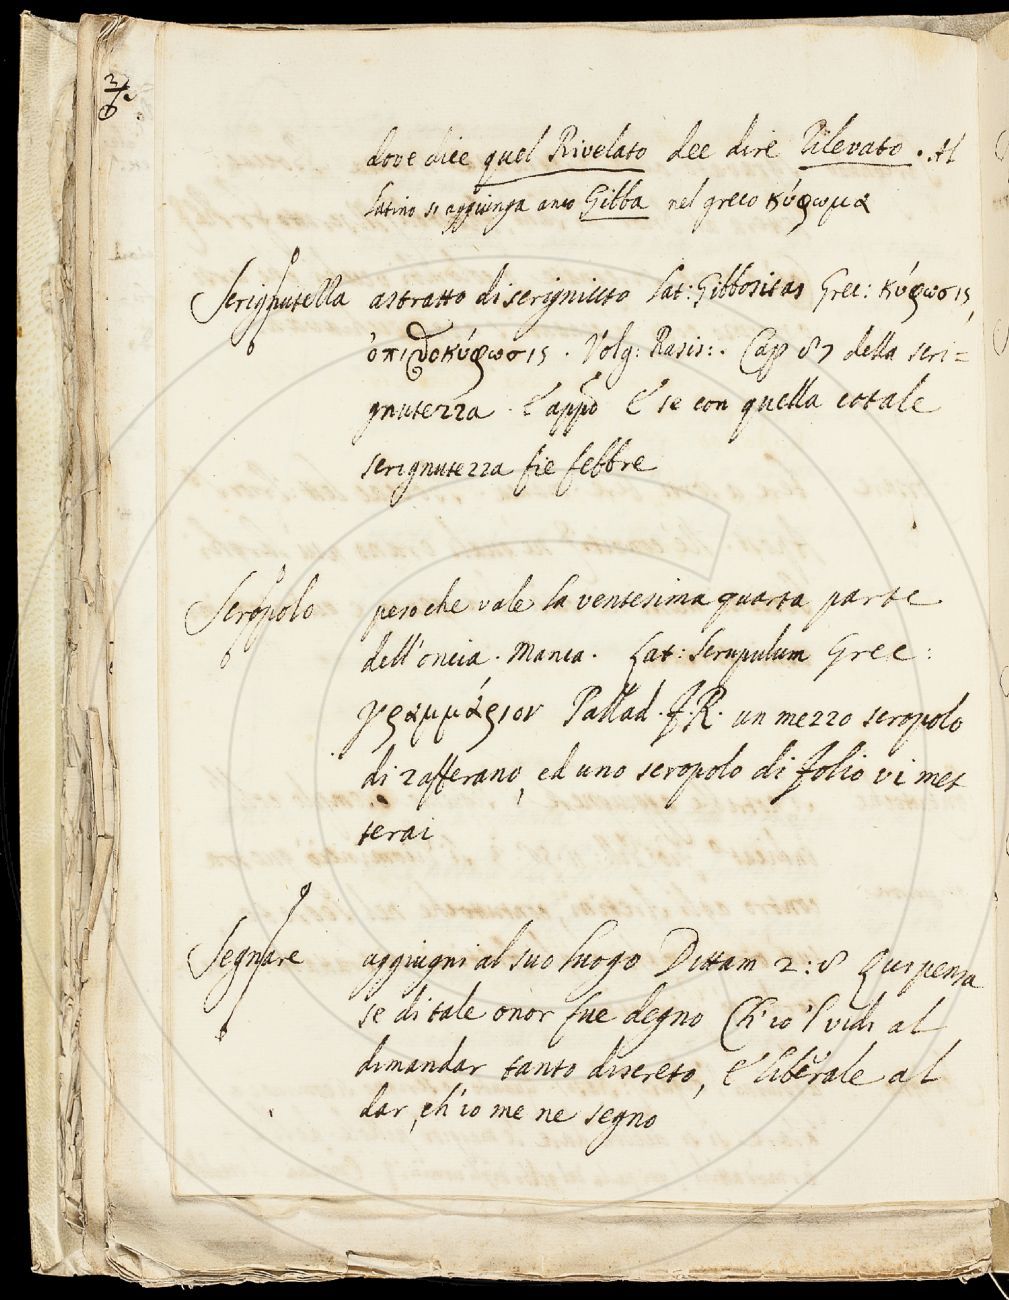 dove dice quel Rivelato dee dire Rilevato. Al
latino si aggiunga anco Gibba nel greco κύφωμα
Serignutezza astratto di serignuto Lat: Gibbositas Grec: κύφωσις,
ὀπισθοκύφωσις. Volg: Rasis:. Cap 87 della seri=
gnutezza. E app.o E se con quella cotale
serignutezza fie febbre
Scropolo peso che vale la ventesima quarta parte
dell'oncia. Manca. Lat: Scrupulum Grec:
γραμμάριον Pallad. F. R. un mezzo scropolo
di zafferano, ed uno scropolo di folio vi met
terai
Segnare aggiugni al suo luogo Dittam 2:8 Qui pensa
se di tale onor fue degno Ch'io'l vidi al
dimandar tanto discreto, E liberale al
dar, ch'io me ne segno